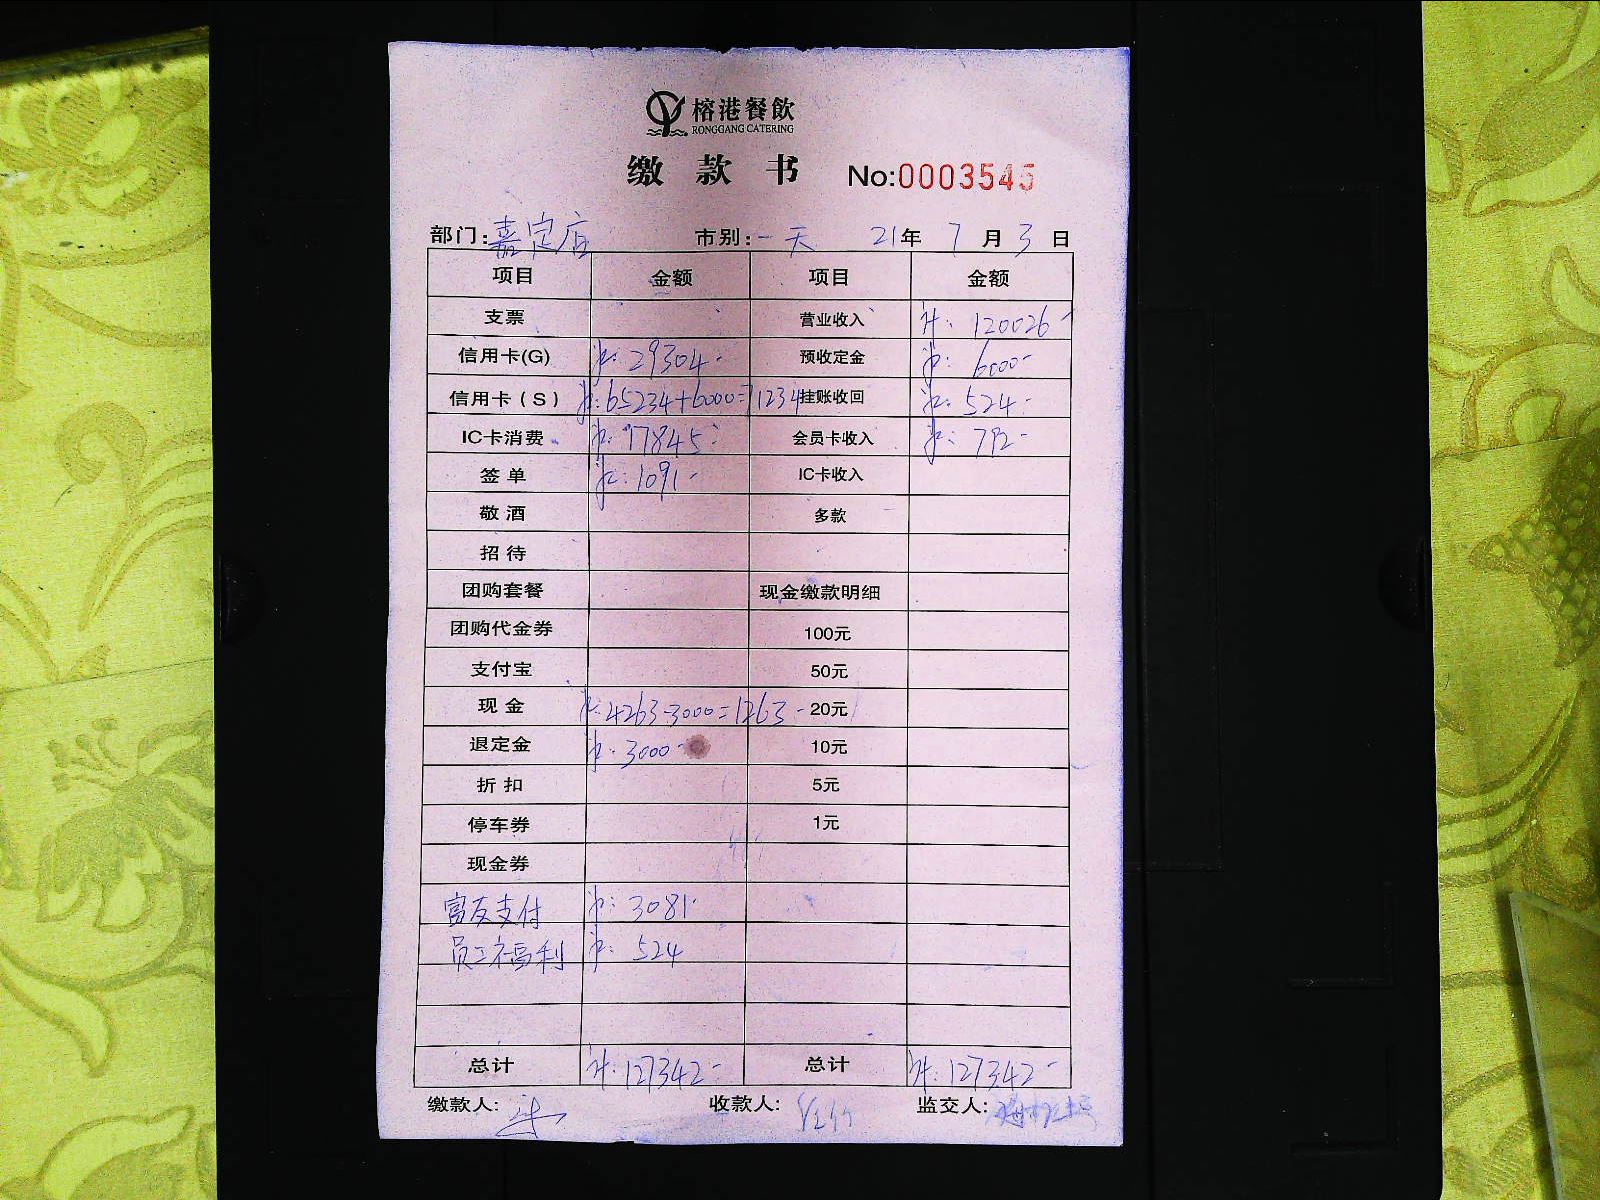 榕港餐飲
RONGGANG CATERING
缴款书 No:0003545
部门:嘉定店 市别:一天 21年7月3日
项目 金额 项目 金额
支票 营业收入 计: 120026-
信用卡(G) 计: 29304- 预收定金 计: 6000-
信用卡(S) 计: 65234+6000=71234 挂账收回 计: 524-
IC卡消费 计: 17845- 会员卡收入 计: 792-
签单 计: 1091- IC卡收入
敬酒 多款
招待
团购套餐 现金缴款明细
团购代金券 100元
支付宝 50元
现金 计: 4263-3000=1263- 20元
退定金 计: 3000- 10元
折扣 5元
停车券 1元
现金券
富友支付 计: 3081-
员工福利 计: 524
总计 计: 127342- 总计 计: 127342-
缴款人: 收款人: 监交人: